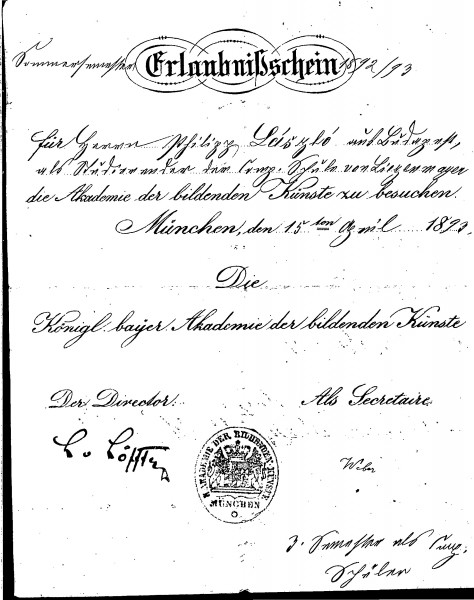 Sommersemester Erlaubnißschein 1892/93
für Herrn Philipp László aus Budapest,
als Studierender der Comp. Schule von Liezenmayer
die Akademie der bildenden Künste zu besuchen.
München, den 15ten April 1893.
Die
Königl. bayer Akademie der bildenden Künste
Der Director. Als Secretaire.
L. v. Löfftz
Weber
K. AKADEMIE DER BILDENDEN KÜNSTE
MÜNCHEN
3. Semester als Comp.
Schüler